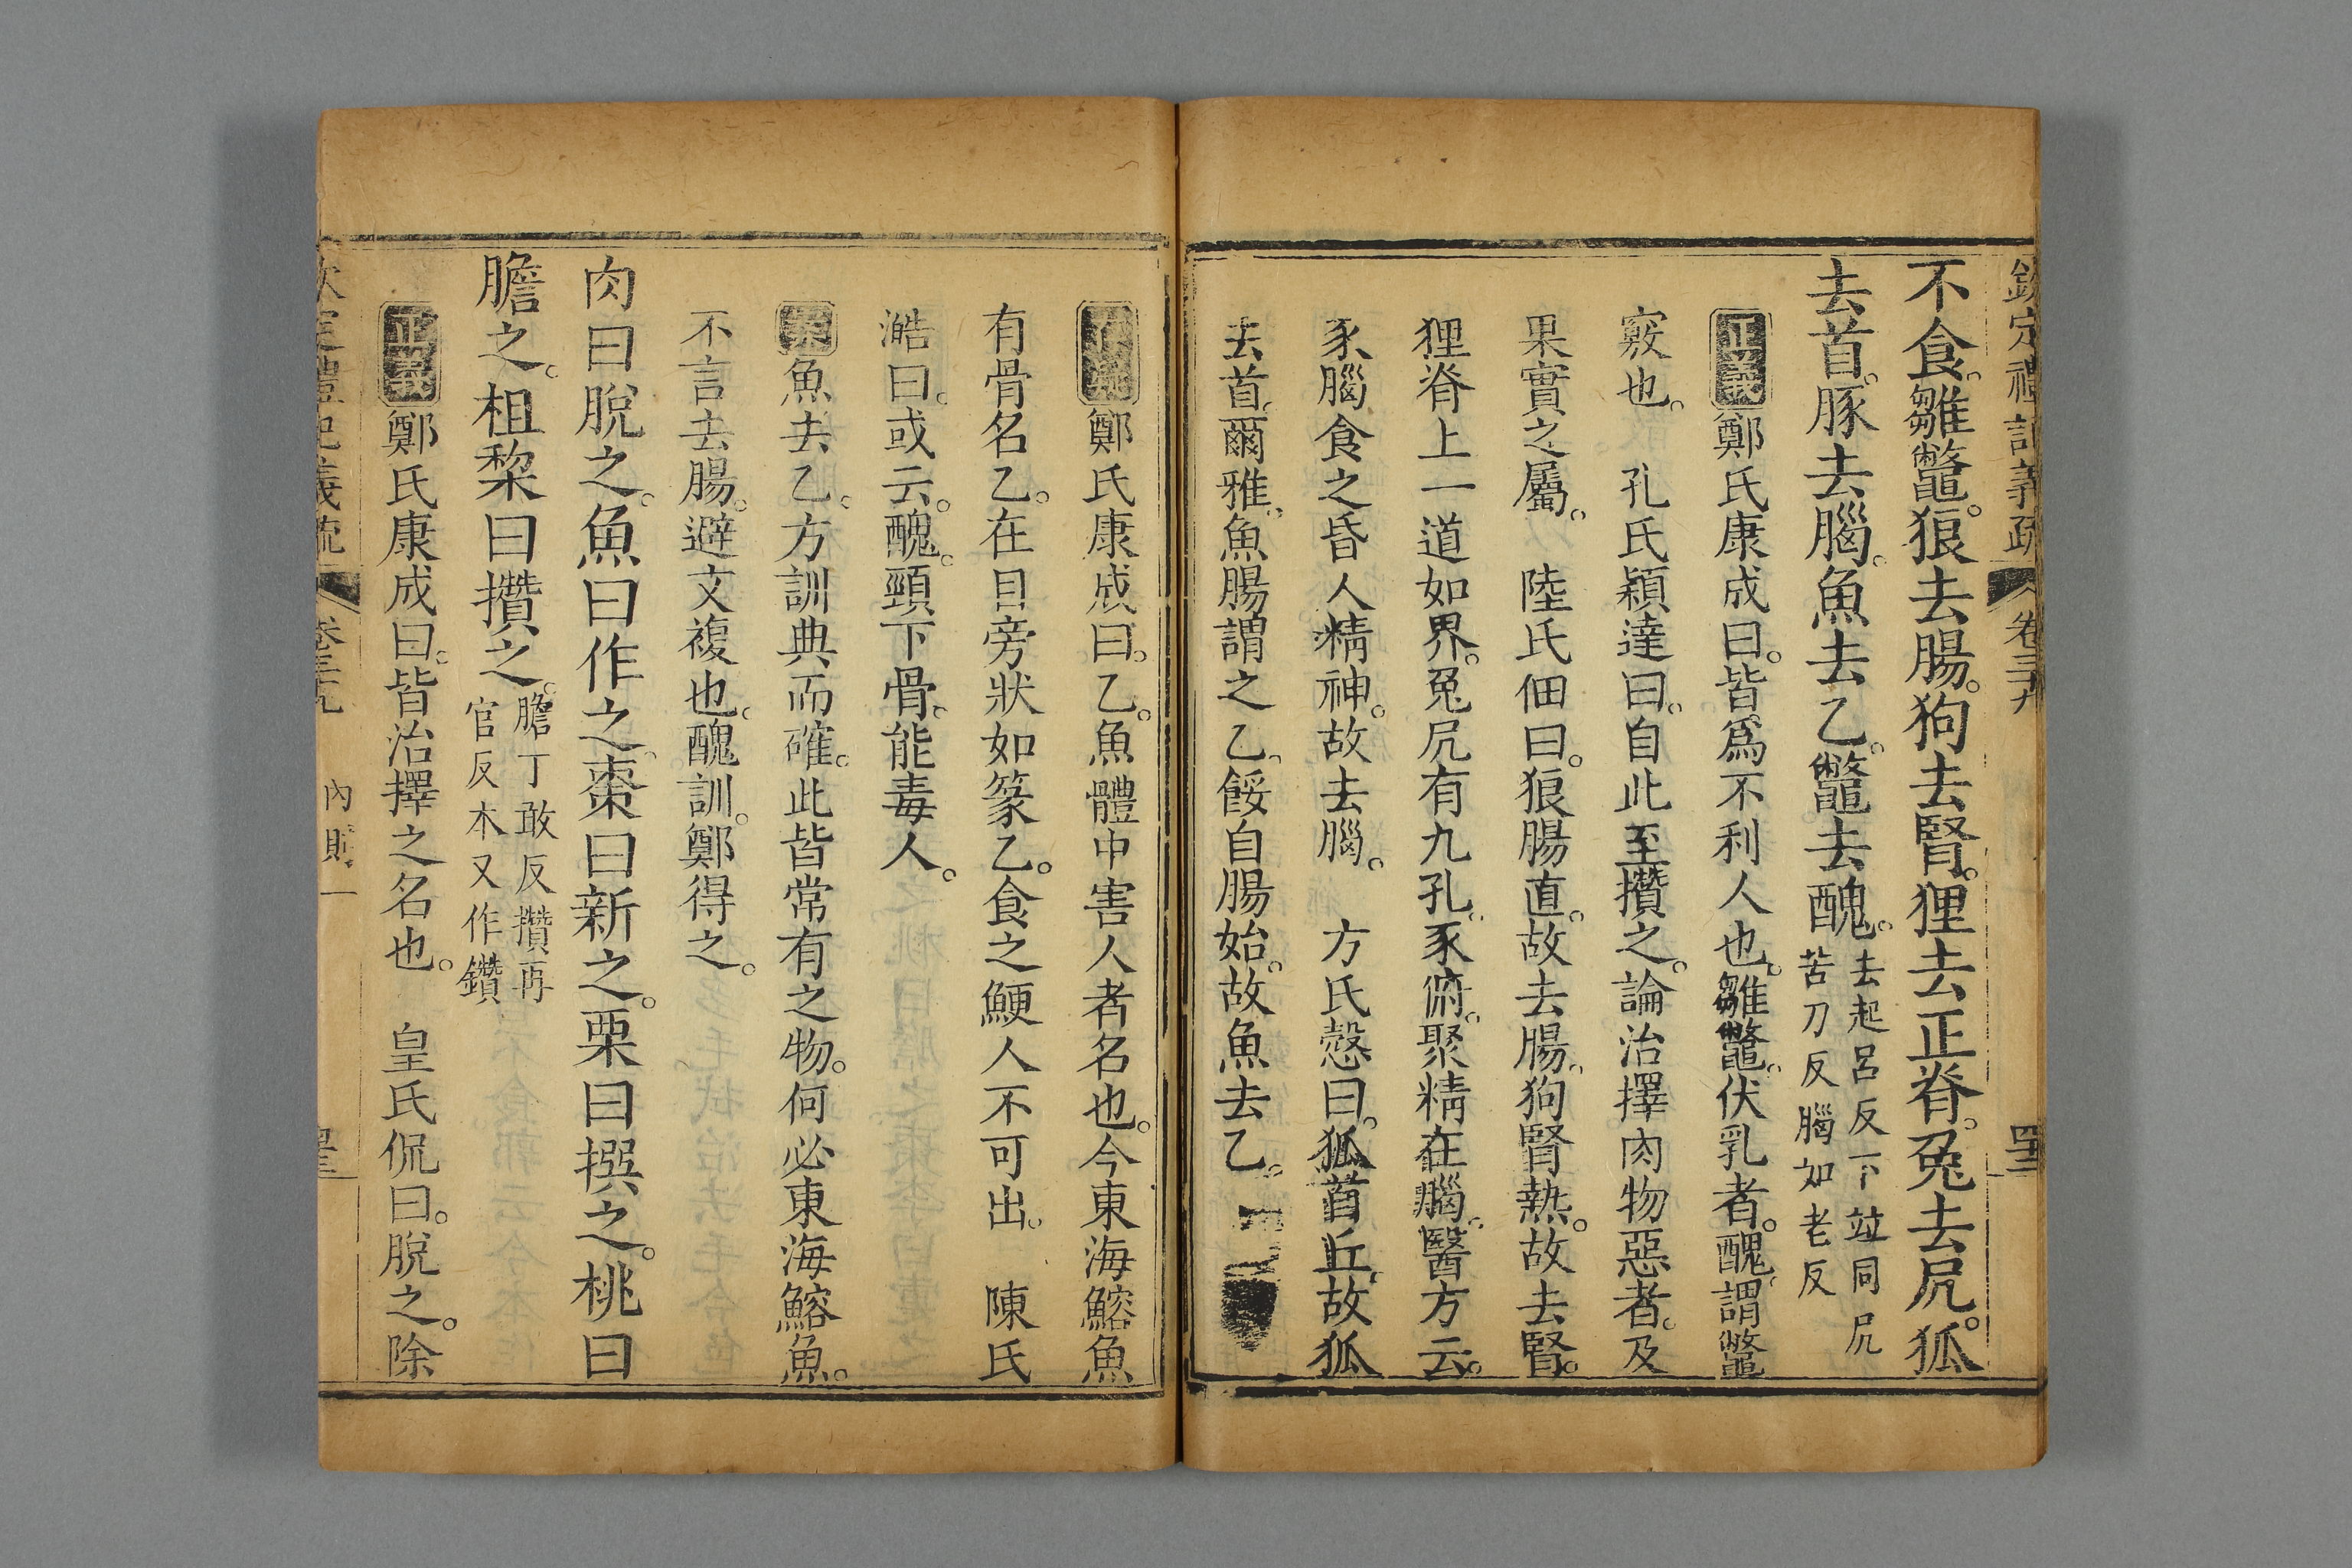 欽定禮記義疏 卷三十九 
不食雛鼈。狼去腸。狗去腎。狸去正脊。兔去尻。狐
去首。豚去腦。魚去乙。鼈去醜。去起呂反下竝同尻
苦刀反腦如老反
正義鄭氏康成曰。皆爲不利人也。雛鼈。伏乳者。醜。謂鼈
竅也。 孔氏穎達曰。自此至攢之。論治擇肉物惡者。及
果實之屬。 陸氏佃曰。狼腸直。故去腸。狗腎熱。故去腎。
狸脊上一道如界。兔尻有九孔。豕俯。聚精在腦。醫方云。
豕腦食之昏人精神。故去腦。 方氏慤曰。狐首丘。故狐
去首。爾雅。魚腸謂之乙。餒自腸始。故魚去乙。
鄭氏康成曰。乙。魚體中害人者名也。今東海鰫魚
有骨名乙。在目旁狀如篆乙。食之鯁人不可出。 陳氏
澔曰。或云。醜。頸下骨。能毒人。
案魚去乙。方訓典而確。此皆常有之物。何必東海鰫魚。
不言去腸。避文複也。醜訓。鄭得之。
肉曰脫之。魚曰作之。棗曰新之。栗曰撰之。桃曰
膽之。柤棃曰攢之。膽丁敢反攢再
官反本又作鑽
正義鄭氏康成曰。皆治擇之名也。 皇氏侃曰。脫之。除
欽定禮記義疏 卷三十九 內則